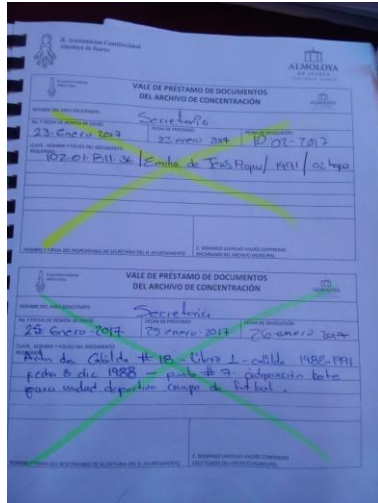 H. Ayuntamiento Constitucional
Almoloya de Juárez
ALMOLOYA
DE JUÁREZ
VALE DE PRÉSTAMO DE DOCUMENTOS
DEL ARCHIVO DE CONCENTRACIÓN
NOMBRE DEL AREA SOLICITANTE
Secretaria
No. Y FECHA DE REMISIÓN DE ENVIO
FECHA DE PRESTAMO
FECHA DE DEVOLUCIÓN
23-Enero 2017
23-enero 2017
10-02-2017
CLAVE, NOMBRE Y FOLIOS DEL DOCUMENTO
REQUERIDO
Emilio de 1991
NOMBRE Y FIRMA DEL RESPONSABLE DE SECRETARIA DEL H. AYUNTAMIENTO
C. DOMINGO VALDÉS CONTRERAS
ENCARGADO DEL ARCHIVO MUNICIPAL
VALE DE PRÉSTAMO DE DOCUMENTOS
DEL ARCHIVO DE CONCENTRACIÓN
NOMBRE DEL AREA SOLICITANTE
Secretaria
No. Y FECHA DE REMISIÓN DE ENVIO
FECHA DE PRESTAMO
FECHA DE DEVOLUCIÓN
25 Enero-2017
25 enero-2017
26-enero 2017
CLAVE, NOMBRE Y FOLIOS DEL DOCUMENTO
REQUERIDO
Acta de Cabildo # 18 - Libro 1 - cabildo 1988-1991
fecha 8 dic 1988 - punto # 7- adquisición lote
para unidad deportiva campo de futbol.
NOMBRE Y FIRMA DEL RESPONSABLE DE SECRETARIA DEL H. AYUNTAMIENTO
C. DOMINGO VALDÉS CONTRERAS
ENCARGADO DEL ARCHIVO MUNICIPAL